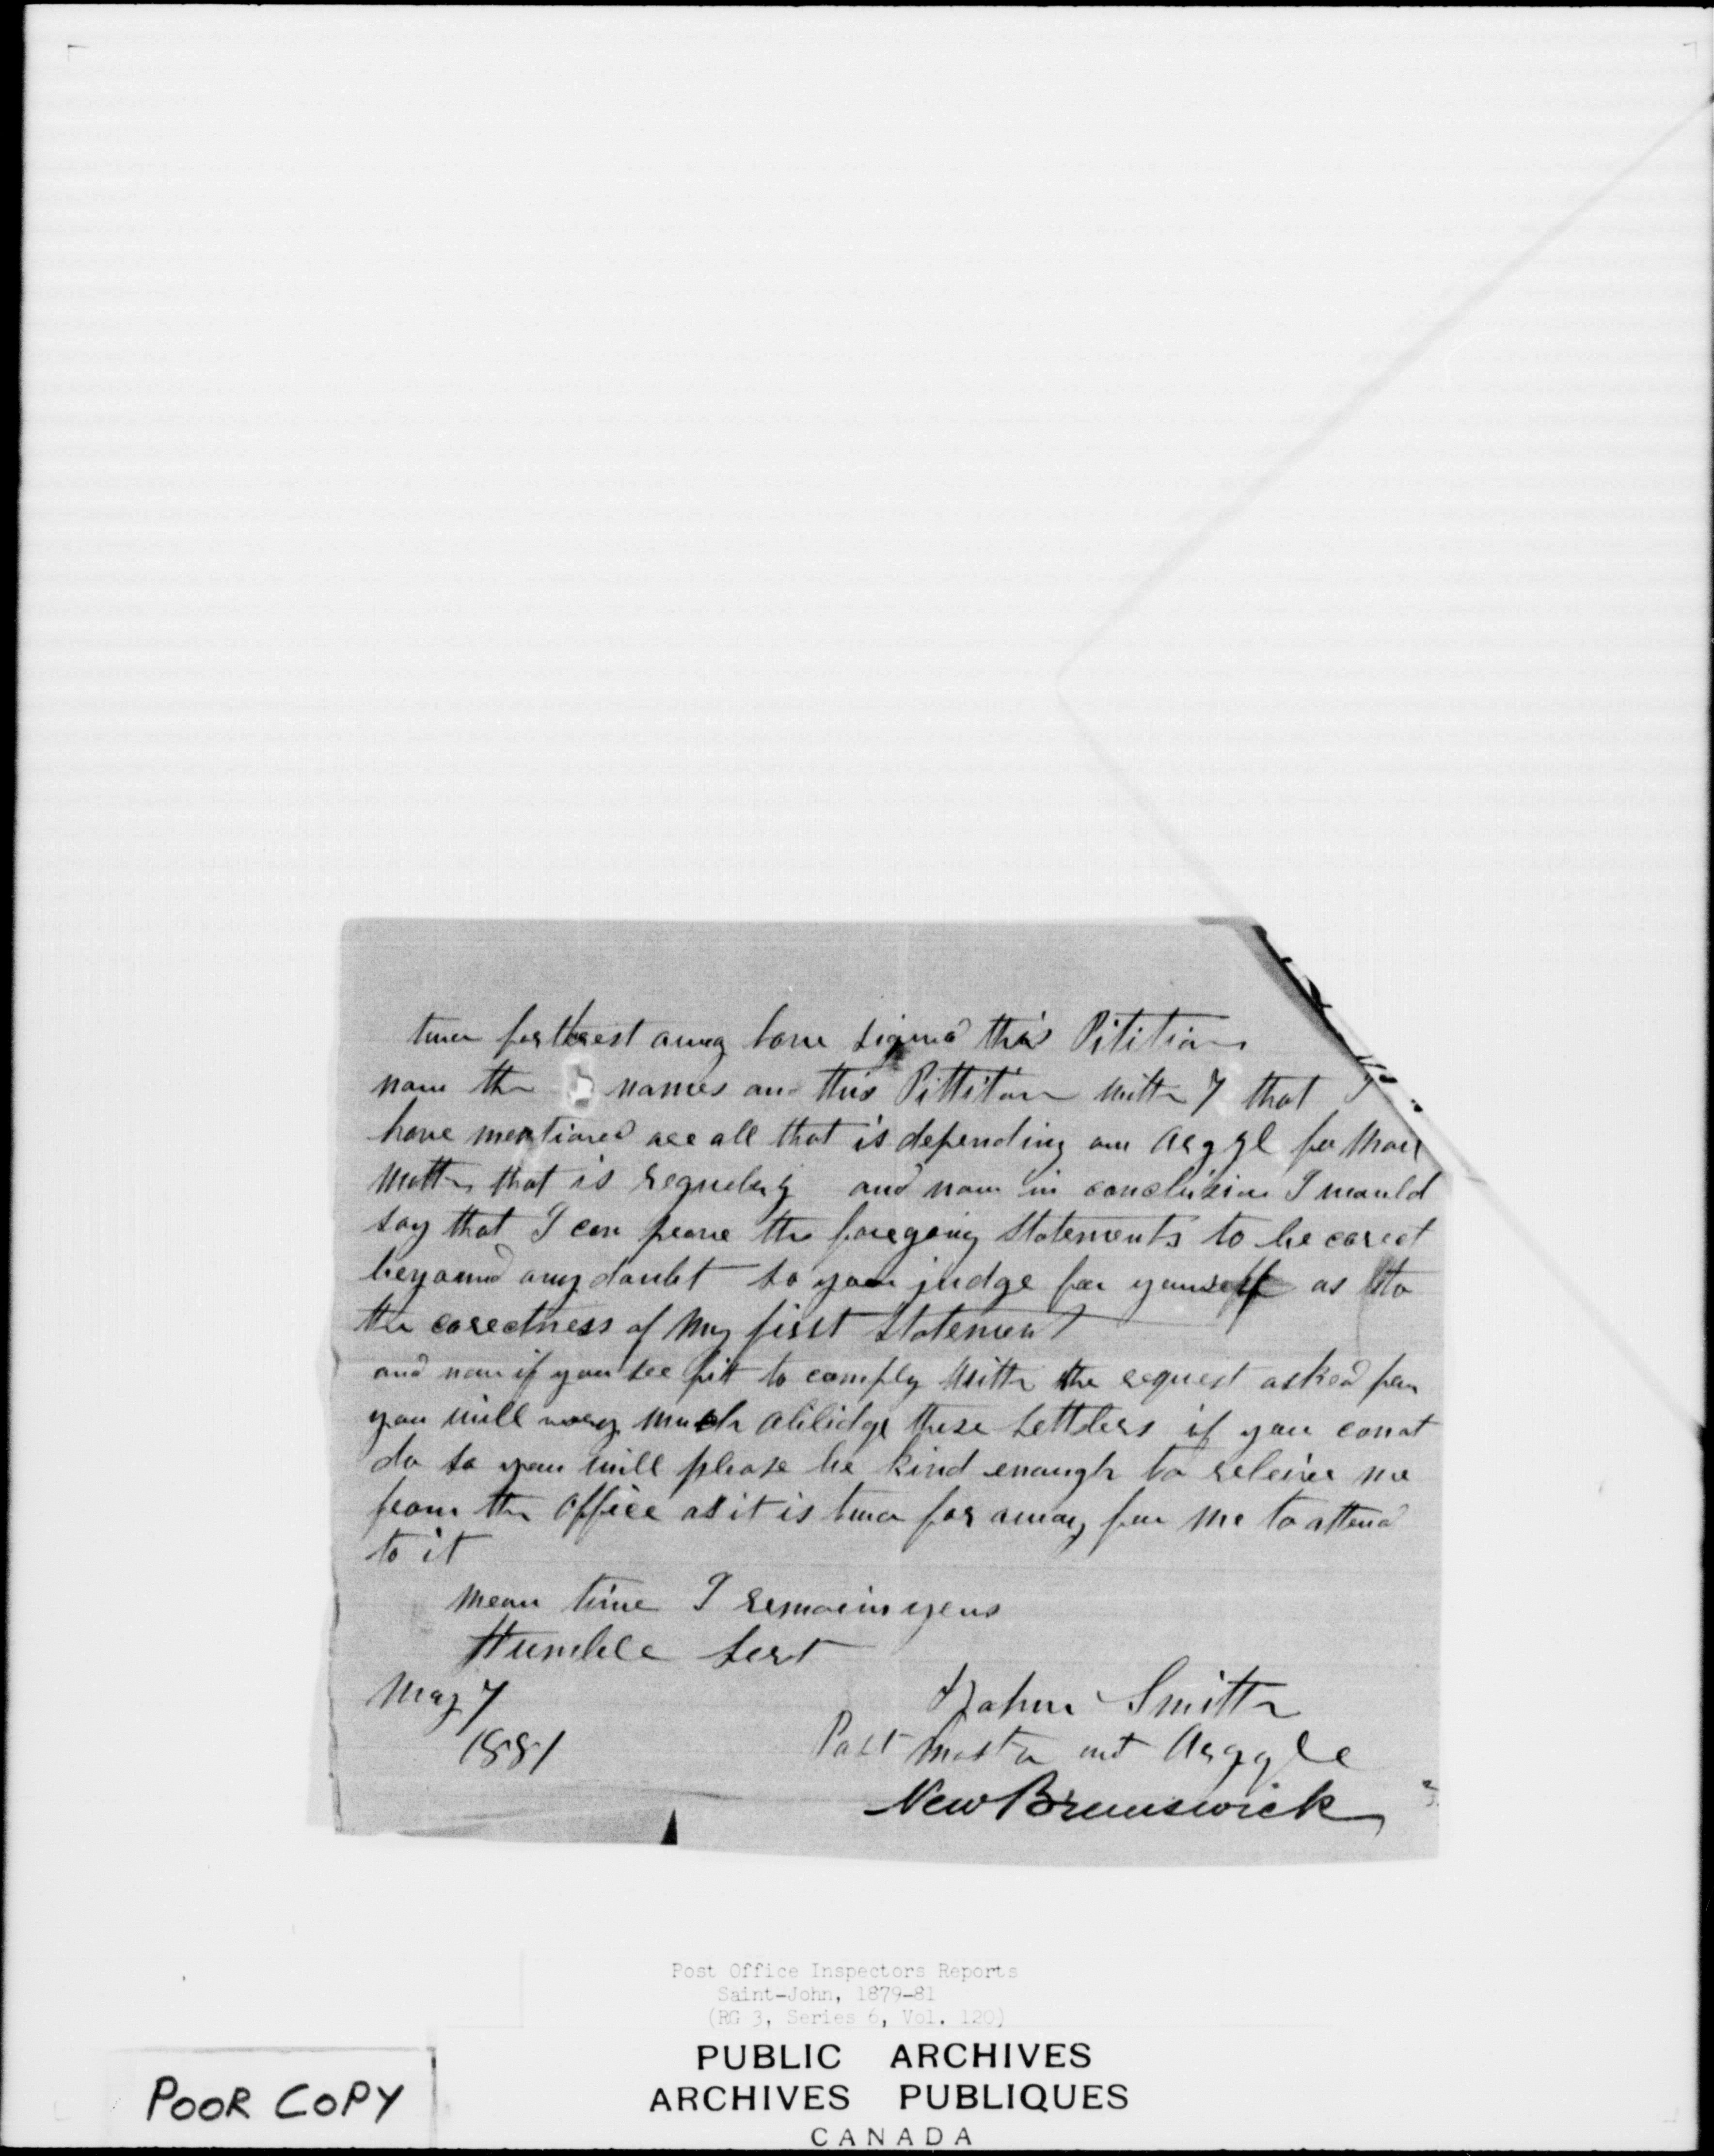 two farthest away have signed this Pitition
now the names on this Pittition with 7 that I
have mentioned are all that is depending on Argyl for Mail
Matter that is regularly and now in conclusion I would
say that I can prove the foregoing statements to be corect
beyound any doubt so you judge for yourself as to
the corectness of my first statement
and now if you see fitt to comply with the request asked for
you will very much ablidge these settlers if you canot
do so you will please be kind enough to releive me
from the office as it is two far away for me to attend
to it
mean time I remain yous
Humble Sert
May 7
1881
John Smith
Post Master at Argyle
New Brunswick
Post Office Inspectors Reports
Saint-John, 1879-81
(RG 3, Series 6, Vol. 120)
PUBLIC ARCHIVES
ARCHIVES PUBLIQUES
CANADA
POOR COPY